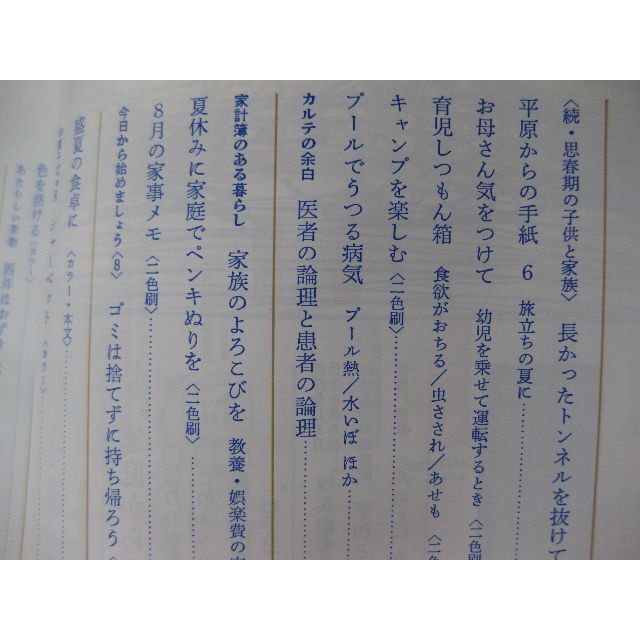 〈続・思春期の子供と家族〉 長かったトンネルを抜けて
平原からの手紙 6 旅立ちの夏に
お母さん気をつけて 幼児を乗せて運転するとき〈二色刷〉
育児しつもん箱 食欲がおちる／虫さされ／あせも〈二
キャンプを楽しむ〈二色刷〉
プールでうつる病気 プール熱／水いぼ ほか
カルテの余白 医者の論理と患者の論理
家計簿のある暮らし 家族のよろこびを 教養・娯楽費の
夏休みに家庭でペンキぬりを〈二色刷〉
8月の家事メモ〈二色刷〉
今日から始めましょう〈8〉 ゴミは捨てずに持ち帰ろう〈
盛夏の食卓に〈カラー・本文〉
シャーベット〈カラー〉
色を活ける〈カラー〉